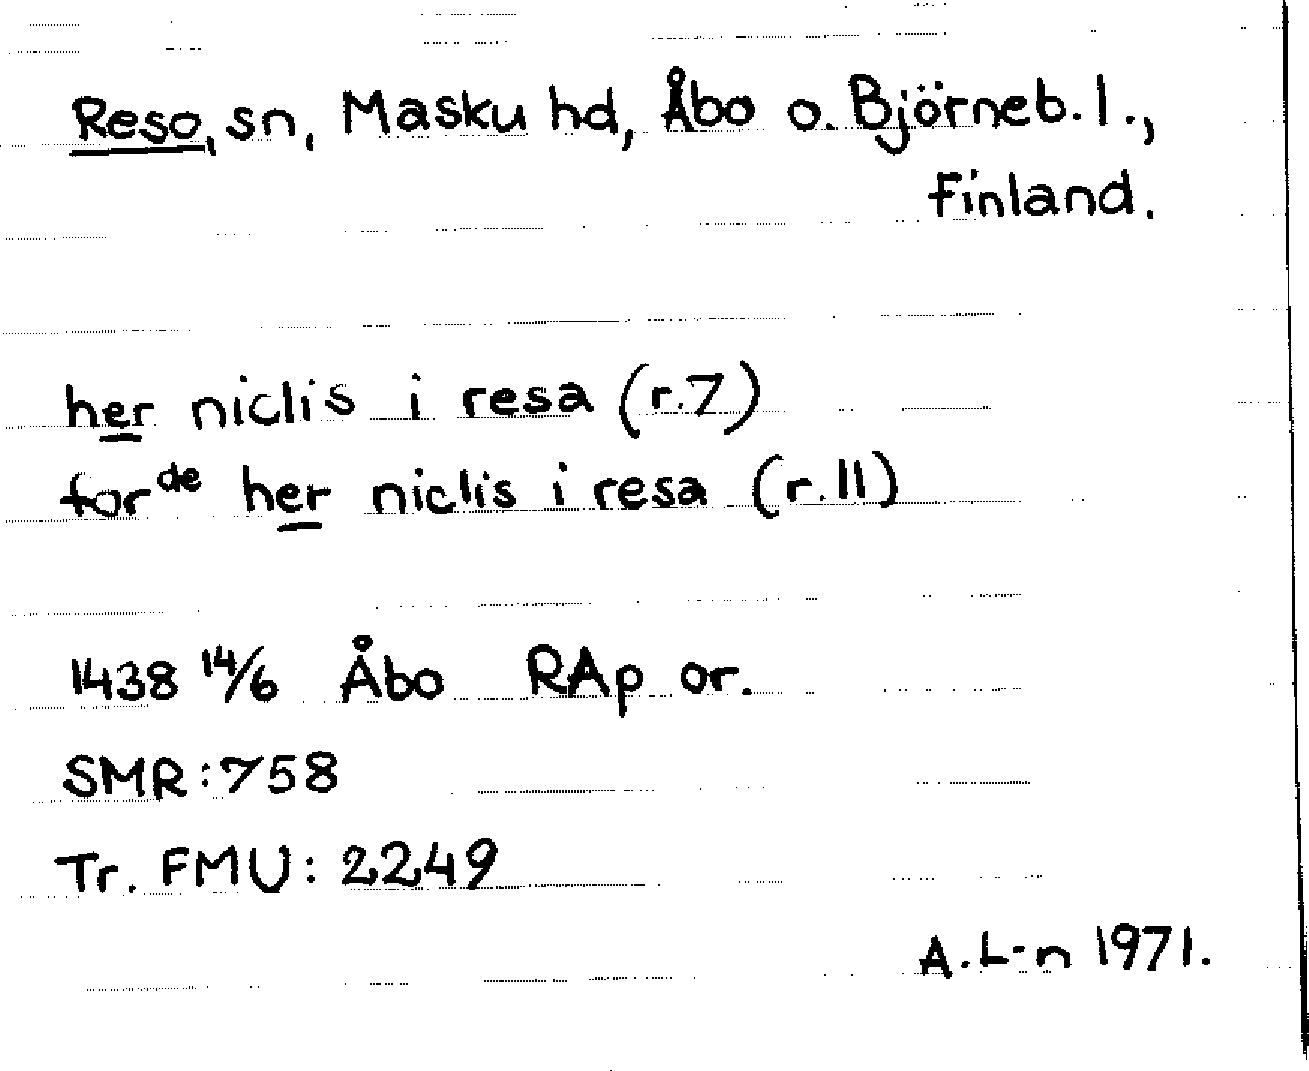 Reso, sn, Masku hd, Åbo o. Björneb. l.,
Finland.
her niclis i resa (r.7)
forde her niclis i resa (r.11)
1438 14/6 Åbo RAp or.
SMR: 758
Tr. FMU: 2249
A. L-n 1971.